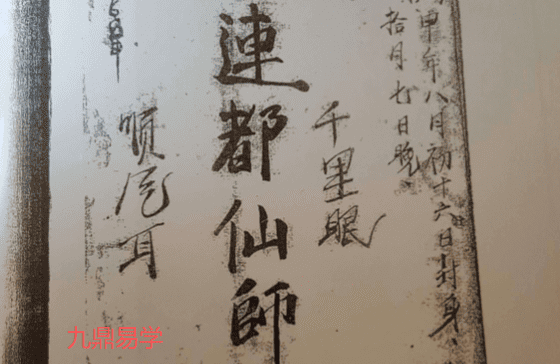 甲年八月初十六日封身、
拾月七日晚
千里眼
連都仙師
順風耳
九鼎易学